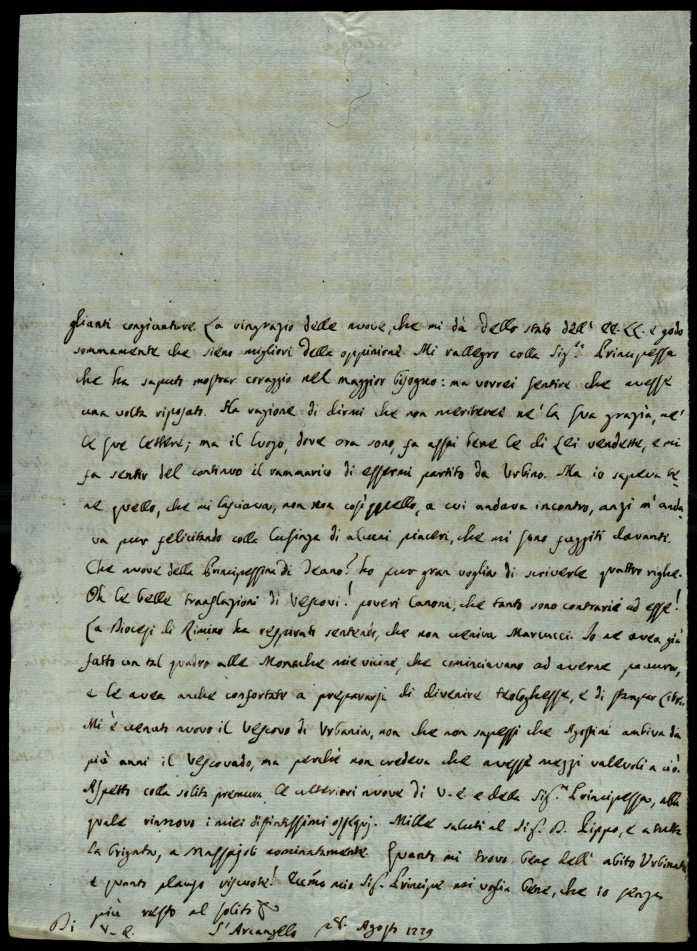 glianti congiunture. La ringrazio delle nuove, che mi dà dello stato dell' EE. LL. e godo
sommamente che sieno migliori della oppinione. Mi rallegro colla Sig.ra Principessa
che ha saputo mostrar coraggio nel maggior bisogno: ma vorrei sentire che avesse
una volta riposato. Ha ragione di dirmi che non meriterei ne' la sua grazia, ne'
le sue lettere; ma il luogo, dove ora sono, fa assai bene le di Lei vendette, e mi
fa sentir del continuo il rammarico di essermi partito da Urbino. Ma io sapeva be
ne quello, che mi lasciava, non così quello, a cui andava incontro, anzi m'anda
va pur felicitando colla lusinga di alcuni piaceri, che mi sono fuggiti davanti.
Che nuove della Principessina di Teano? ho pur gran voglia di scriverle quattro righe.
Oh le belle translazioni di Vescovi! poveri Canoni, che tanto sono contrarie ad esse!
La Diocesi di Rimino ha respirato sentendo, che non veniva Marcucci. Io ne avea già
fatto un tal quadro alle Monache mie vicine, che cominciavano ad averne paura,
e le avea anche confortate a prepararsi di divenire teologhesse, e di stampar libri.
Mi è venuto nuovo il Vescovo di Urbania, non che non sapessi che Agostini ambiva da
più anni il Vescovado, ma perchè non credeva che avesse mezzi valevoli a ciò.
Aspetto colla solita premura le ulteriori nuove di V. E. e della Sig.ra Principessa, alla
quale rinnovo i miei distintissimi ossequj. Mille saluti al Sig. D. Pippo, e a tutta
la brigata, a Massajoli nominatamente. Quanto mi trovo bene dell' abito Urbinate
e quanto plauso riscuote! mio Sig. Principe mi voglia bene, che io senza
più resto al solito
Di V. E. S. Arcangelo 28. Agosto 1779